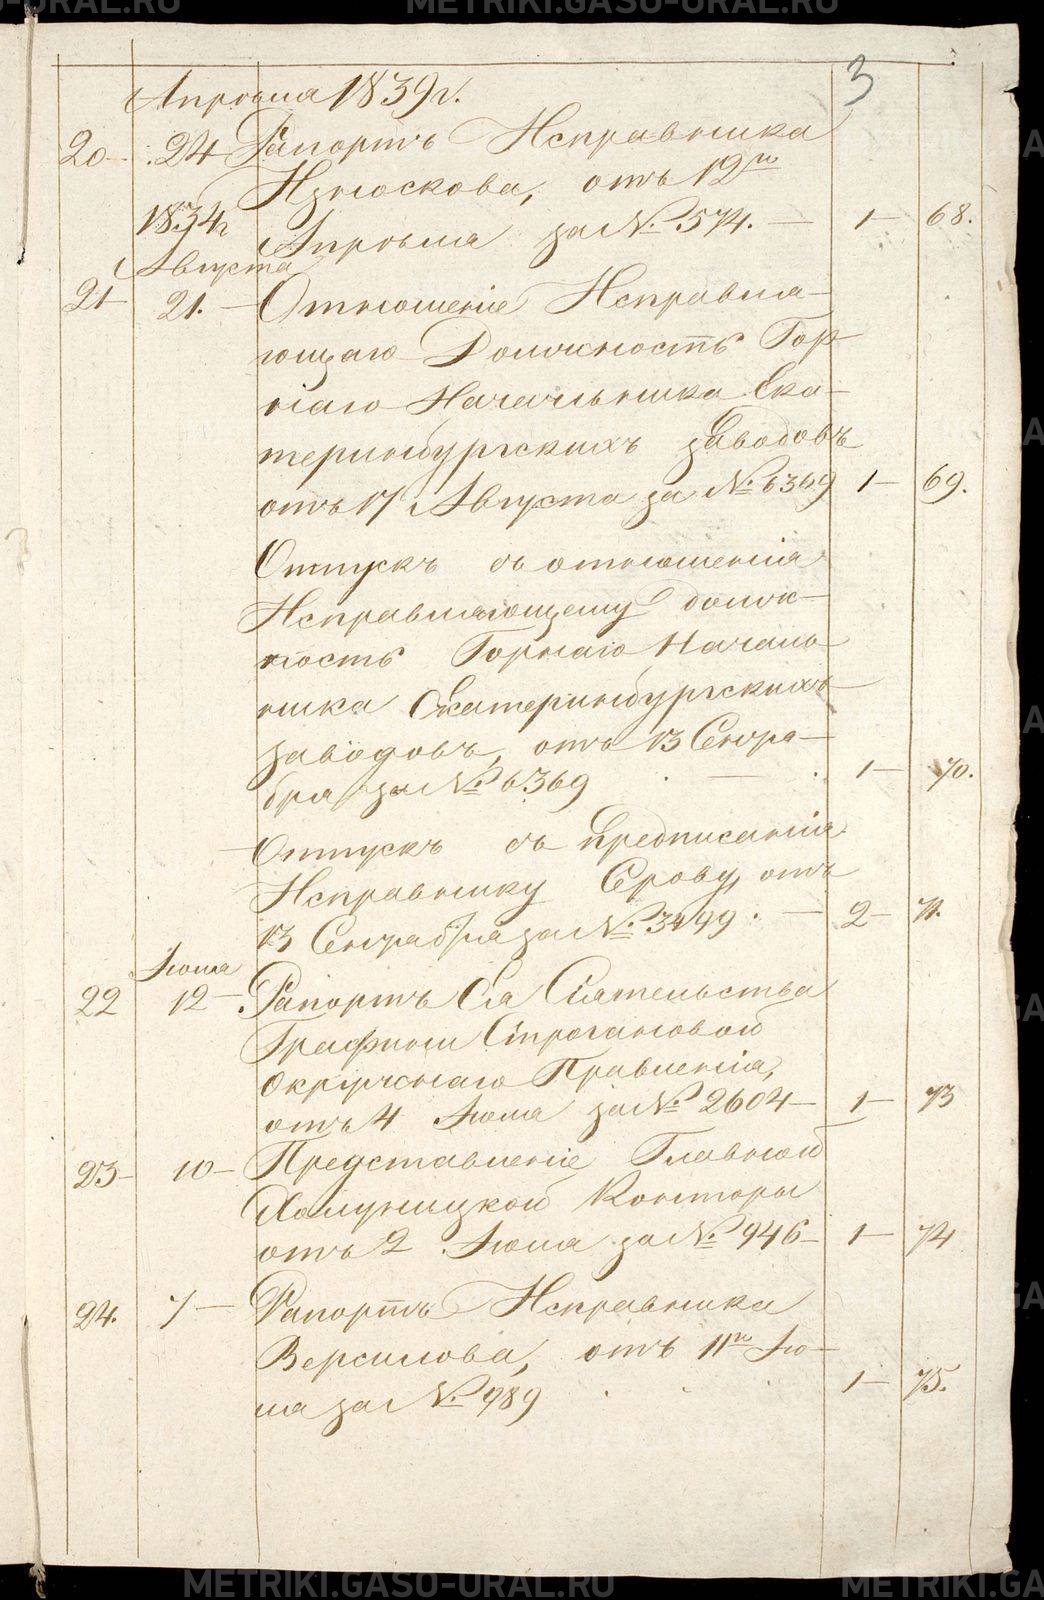 METRIKI.GASO-URAL.RU METRIKI.GASO-URAL.RU
3
Апрѣля 1839 г.
20 24 Рапортъ Исправника
отъ 12го
1834 г Апрѣля за № 574. — 1 — 68.
Августа
21 21. — Отношеніе Исправля-
ющаго Должность Гор-
наго Начальника Ека-
теринбургскихъ заводовъ
отъ 17 Августа за № 6369 1 — 69.
Отпускъ съ отношенія
Исправляющему долж-
ность Горнаго Началь
ника Екатеринбургскихъ
заводовъ, отъ 13 Сентя-
бря за № 6369 — 1 — 70.
Отпускъ съ предписанія
Исправнику Ерову, отъ
13 Сентября за № 3499. — 2 — 71.
Іюля
22 12 — Рапортъ Ея Сіятельства
Графини Строгановой
Окружнаго Правленія,
отъ 4 Іюля за № 2604 — 1 — 73
23 — 10 — Представленіе Главной
Холуницкой Конторы
отъ 2 Іюля за № 946 — 1 — 74
24. 7 — Рапортъ Исправника
Версилова, отъ 11го Ію-
ля за № 989 1 — 75.
METRIKI.GASO-URAL.RU METRIKI.GA